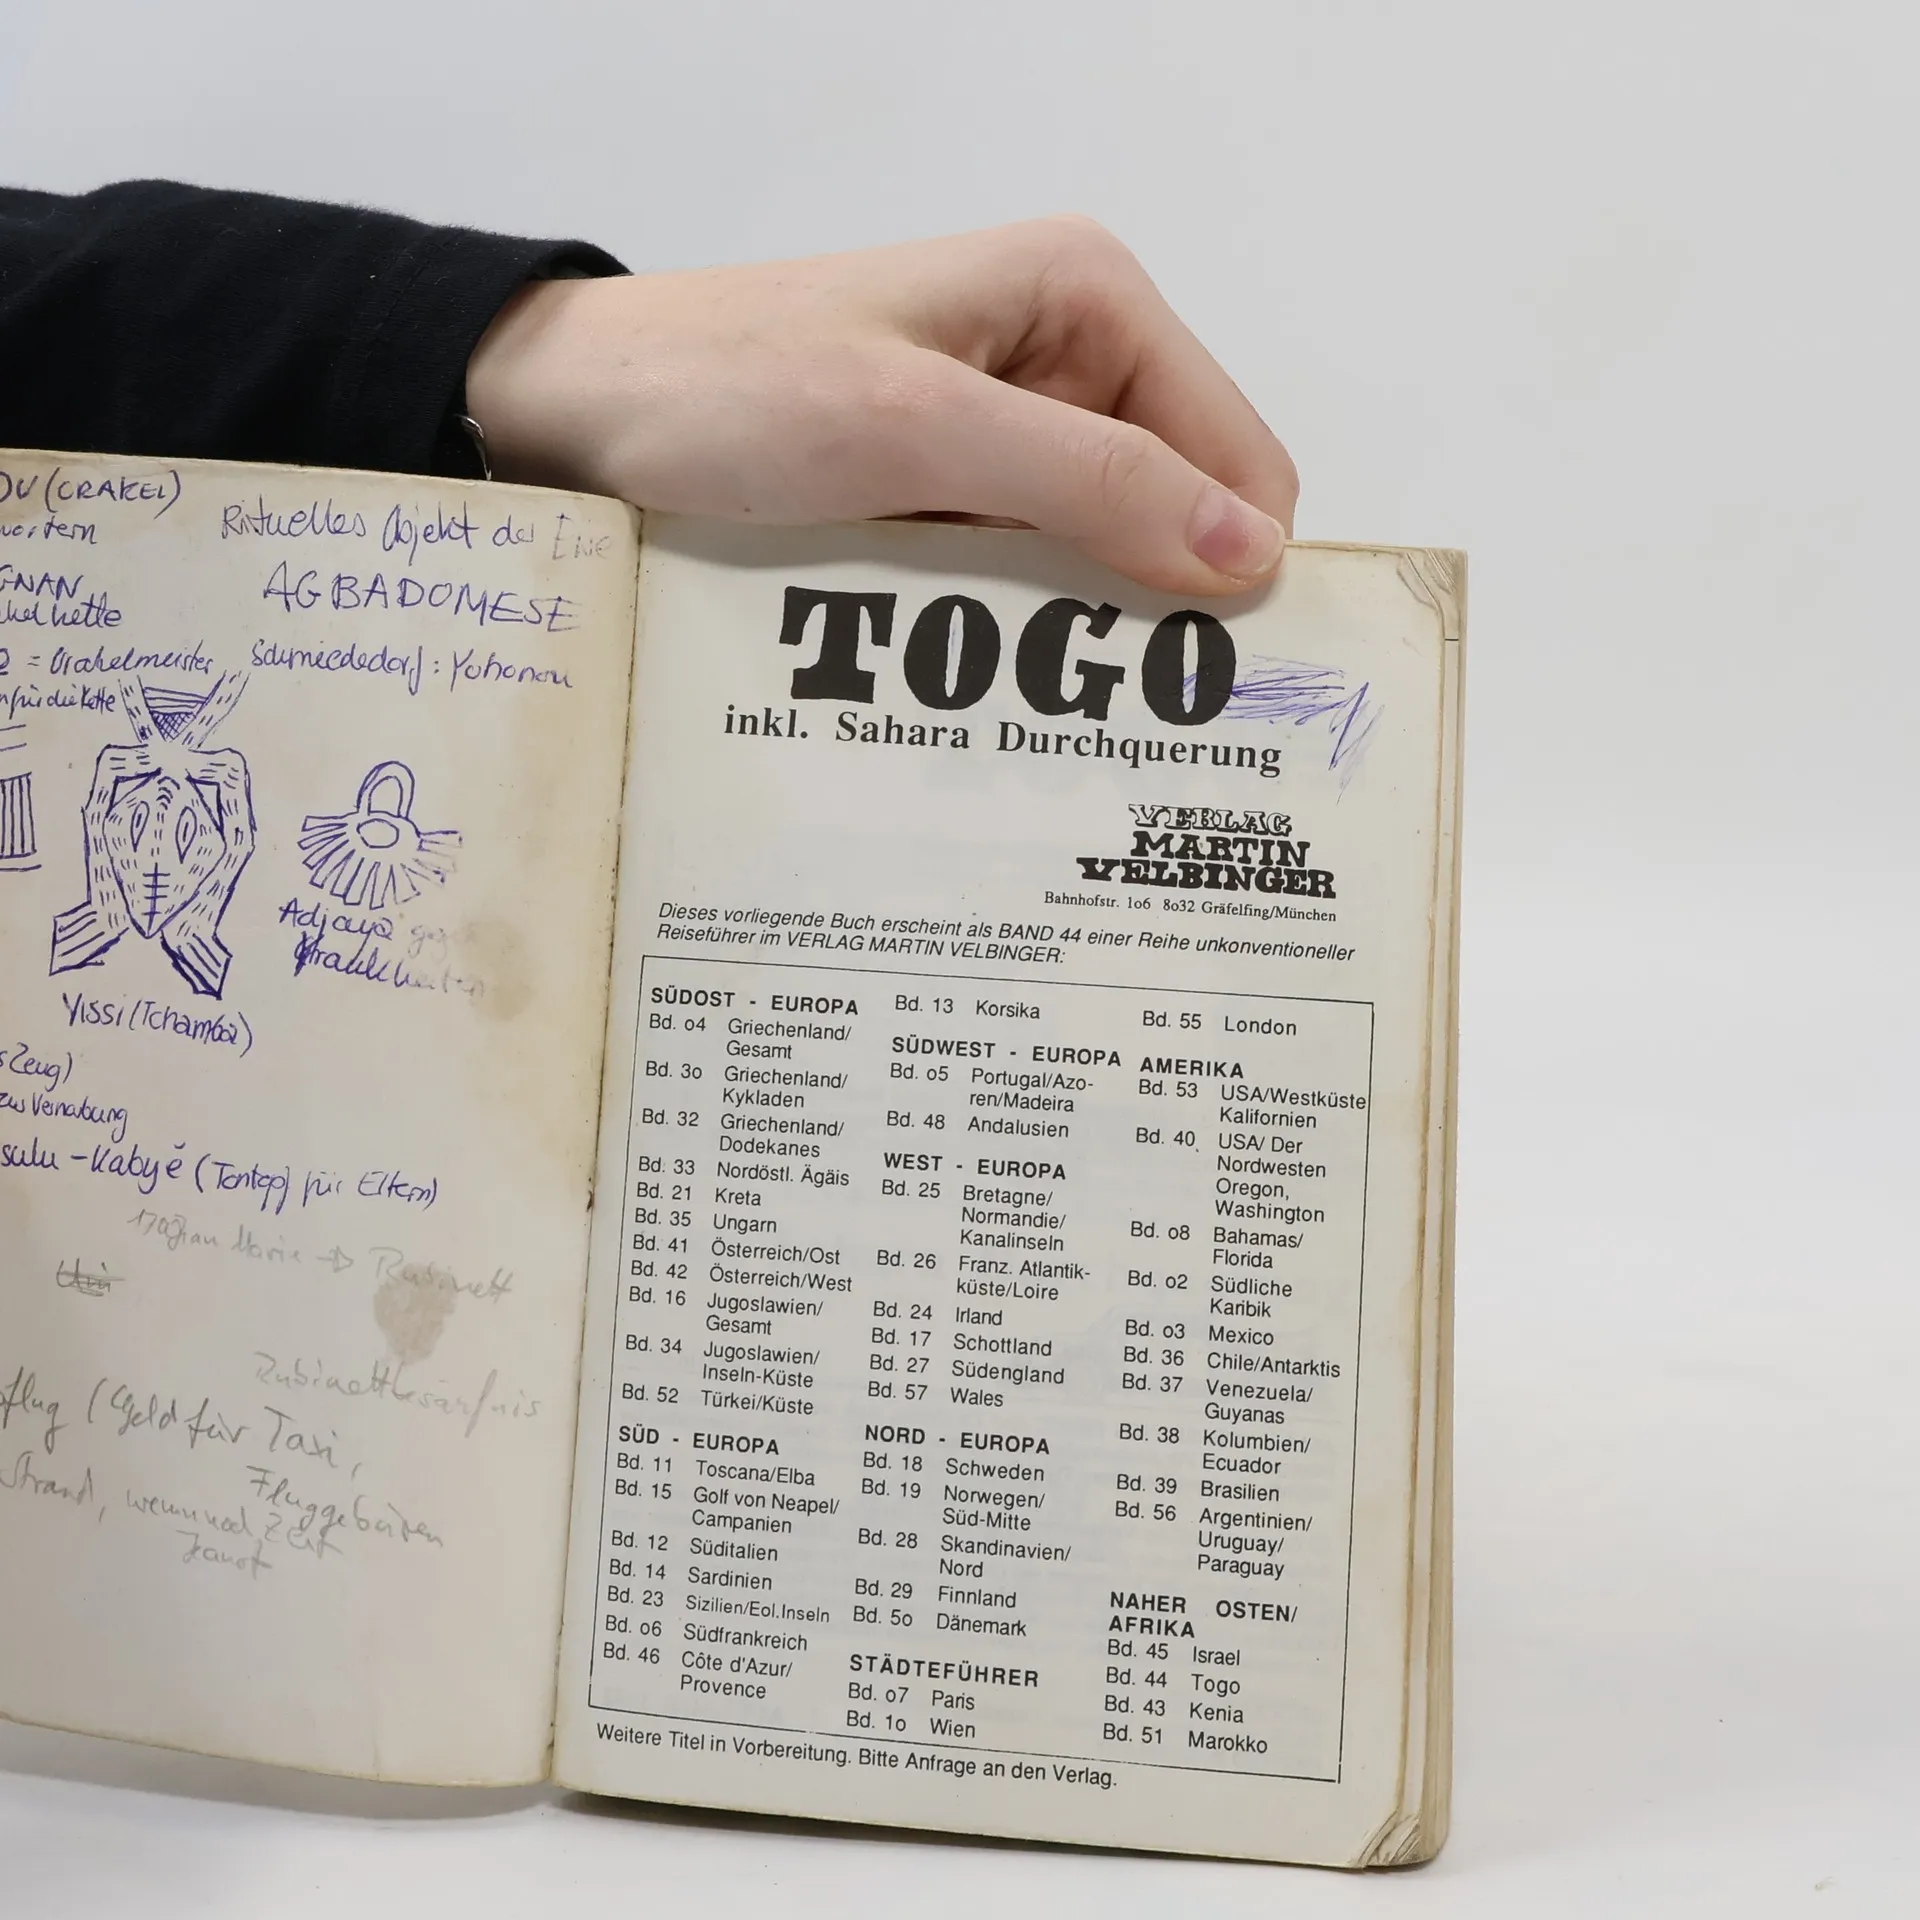 (ORAKEL)
Rituelles Objekt der Ewe
AGBADOMESE
= Orakelmeister
Schmiededorf: Yohonou
für die Kette
Adjaya gegen
Krankheiten
Yissi (Tchamba)
Zeug)
zur Vernarbung
- Kabyě (Tontopf für Eltern)
Marie → Rubinett
(Geld für Taxi,
Strand, wenn noch Zeit
TOGO
inkl. Sahara Durchquerung
VERLAG
MARTIN
VELBINGER
Bahnhofstr. 1o6 8o32 Gräfelfing/München
Dieses vorliegende Buch erscheint als BAND 44 einer Reihe unkonventioneller
Reiseführer im VERLAG MARTIN VELBINGER:
SÜDOST - EUROPA
Bd. o4 Griechenland/
Gesamt
Bd. 3o Griechenland/
Kykladen
Bd. 32 Griechenland/
Dodekanes
Bd. 33 Nordöstl. Ägäis
Bd. 21 Kreta
Bd. 35 Ungarn
Bd. 41 Österreich/Ost
Bd. 42 Österreich/West
Bd. 16 Jugoslawien/
Gesamt
Bd. 34 Jugoslawien/
Inseln-Küste
Bd. 52 Türkei/Küste
SÜD - EUROPA
Bd. 11 Toscana/Elba
Bd. 15 Golf von Neapel/
Campanien
Bd. 12 Süditalien
Bd. 14 Sardinien
Bd. 23 Sizilien/Eol.Inseln
Bd. o6 Südfrankreich
Bd. 46 Côte d'Azur/
Provence
Bd. 13 Korsika
SÜDWEST - EUROPA
Bd. o5 Portugal/Azo-
ren/Madeira
Bd. 48 Andalusien
WEST - EUROPA
Bd. 25 Bretagne/
Normandie/
Kanalinseln
Bd. 26 Franz. Atlantik-
küste/Loire
Bd. 24 Irland
Bd. 17 Schottland
Bd. 27 Südengland
Bd. 57 Wales
NORD - EUROPA
Bd. 18 Schweden
Bd. 19 Norwegen/
Süd-Mitte
Bd. 28 Skandinavien/
Nord
Bd. 29 Finnland
Bd. 5o Dänemark
STÄDTEFÜHRER
Bd. o7 Paris
Bd. 1o Wien
Bd. 55 London
AMERIKA
Bd. 53 USA/Westküste
Kalifornien
Bd. 40 USA/ Der
Nordwesten
Oregon,
Washington
Bd. o8 Bahamas/
Florida
Bd. o2 Südliche
Karibik
Bd. o3 Mexico
Bd. 36 Chile/Antarktis
Bd. 37 Venezuela/
Guyanas
Bd. 38 Kolumbien/
Ecuador
Bd. 39 Brasilien
Bd. 56 Argentinien/
Uruguay/
Paraguay
NAHER OSTEN/
AFRIKA
Bd. 45 Israel
Bd. 44 Togo
Bd. 43 Kenia
Bd. 51 Marokko
Weitere Titel in Vorbereitung. Bitte Anfrage an den Verlag.